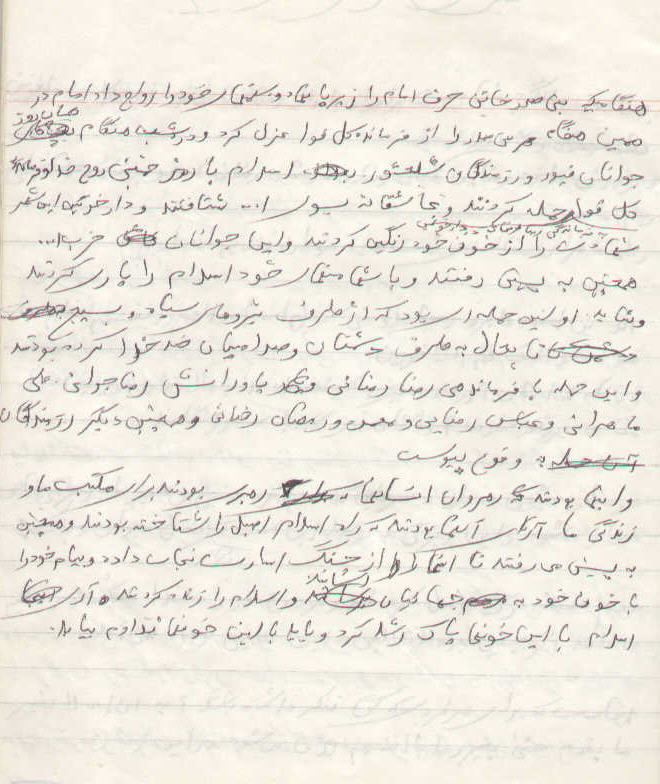 هنگامیکه بنی صدر خائن حرف امام را زیر پا نهاد و ستمهای خود را رواج داد امام در
همین هنگام بنی صدر را از فرمانده کل قوا عزل کرد و در شب هنگام
همان روز
جوانان غیور و رزمندگان اسلام با رمز خمینی روح خدا
کل قوا حمله کردند و عاشقانه بسوی شتافتند و دارخوین این شهر
شهادت را از خون خود رنگین کردند و این جوانان حزب ا...
همچنین به پیش رفتند و با شهامتهای خود اسلام را یاری کردند
و شاید اولین حمله ای بود که از طرف نیروهای سپاه و بسیج
تا بحال به طرف دشمنان و صدامیان ضد خدا کرده بودند
و این حمله با فرماندهی رضا رضائی و یاورانش رضا جوانی علی
عباس رضایی و رمضان رضائی و همچنین دیگر رزمندگان
به وقوع پیوست
و اینها بودند که رهروان رهبری بودند برای مکتب ما و
زندگی ما آری آنها بودند که راه اسلام اصیل را شناخته بودند و همچنین
به پیش می رفتند تا را از چنگ اسارت نجات داده و پیام خود را
با خون خود به جهانیان رسانند و اسلام را زنده کردند آری
اسلام با این خونها پاک رشد کرد و باید با این خونها تداوم بیابد.